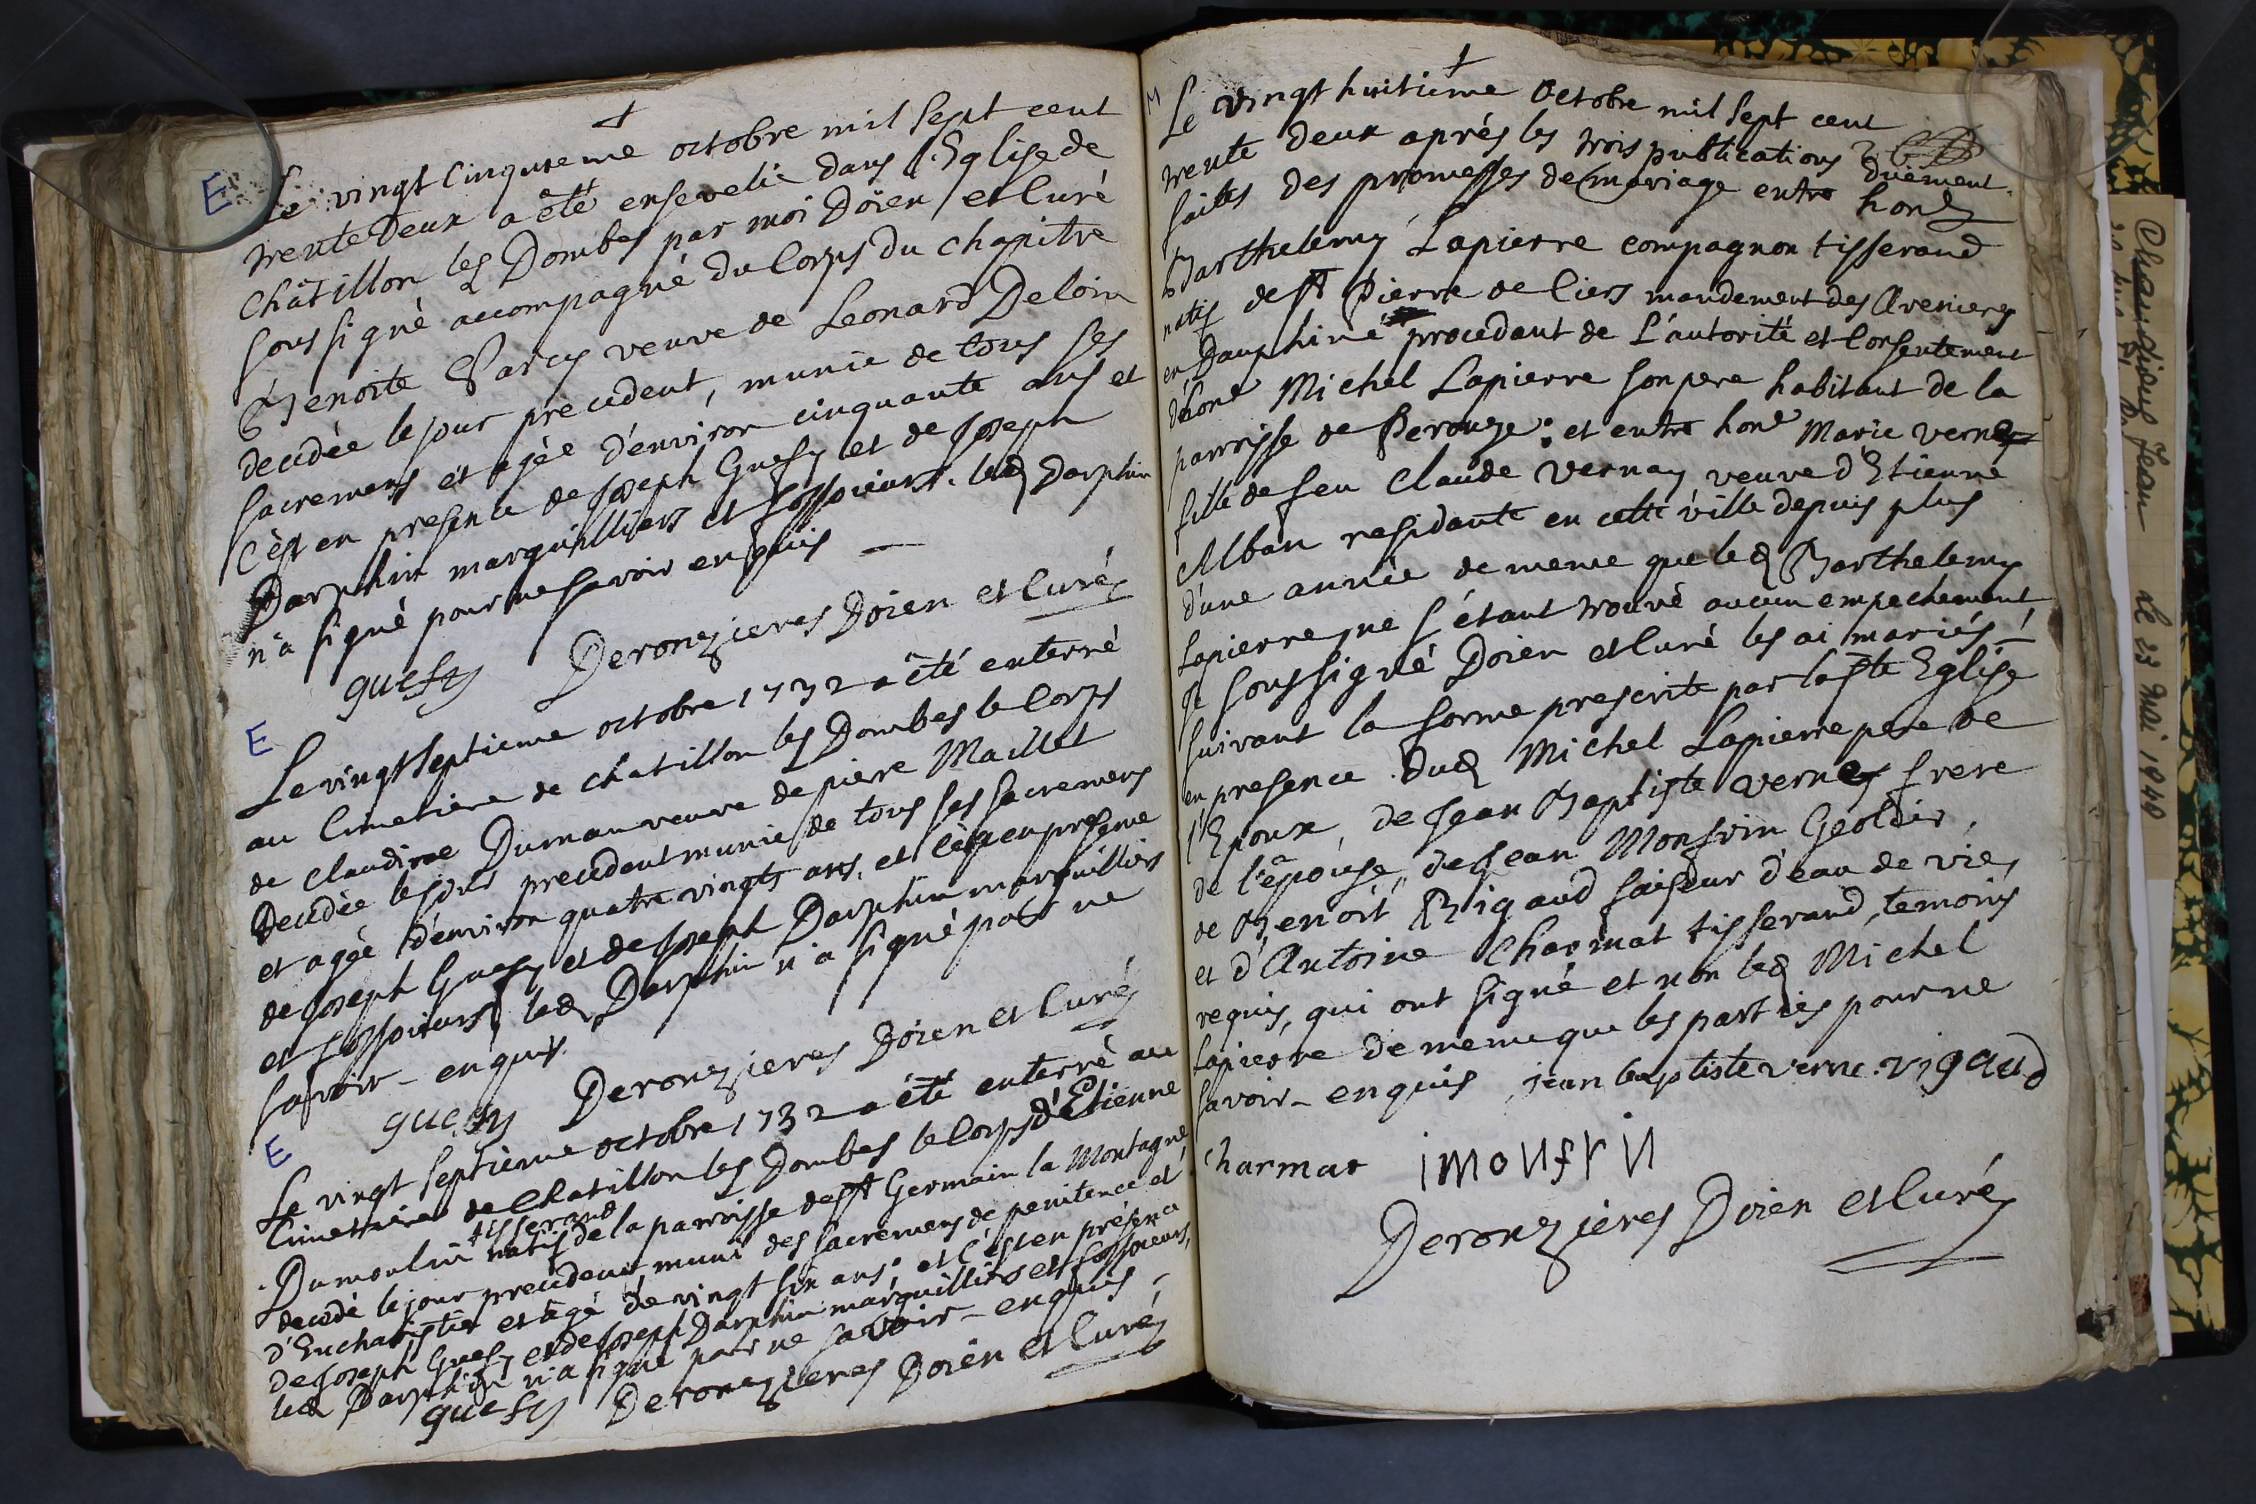 ✝
E Le vingt cinquieme octobre mil sept cent
trente deux a êtê ensevelie dans l'Eglise de
Châtillon les Dombes par moi Doïen et Curé
soussignê accompagné du Corps du chapitre
Benoite Parcy veuve de Leonard Deloin
decedée le jour precedent, munie de tous ses
sacremens et agée d'environ cinquante ans et
c'êst en presence de Joseph Guesy et de Joseph
Darphin marguilliers et fossoieurs. led Darphin
n'a signé pour ne savoir enquis —
guesy Deronzieres Doïen et Curé
E
Le vingt septieme octobre 1732 a êté enterré
au Cimetiere de chatillon les Dombes le Corps
de claudine Durnau veuve de piere Maillet
Decedée le jour precedent munie de tous ses sacremens
et agée d'environ quatre vingts ans. et c'est en presence
de Joseph Guesy et de Joseph Darphin marguilliers
et fossoieurs, led Darphin n'a signé pour ne
savoir - enquis.
guesy Deronzieres Doïen et Curé
E
Le vingt septieme octobre 1732 a êté enterré au
Cimetaire de Chatillon les Dombes le Corps d'Etienne
tisserand
Dumoulin natif de la parroisse de st Germain la Montagne
decedé le jour precedent muni des sacremens de penitence et
d'Eucharistie et âgé de vingt six ans; et c'est en présence
de Joseph Guesy et de Joseph Darphin marguilliers et fossoieurs,
led Darphin n'a signé pour ne savoir - enquis -
guesy Deronzieres Doïen et Curé
✝
M Le vingt huitieme Octobre mil sept cent
trente deux aprés les trois publications
duement
faites des promesses de mariage entre hon
Barthelemy Lapierre compagnon tisserand
natif de st Pierre de Ciers mandement des Avenieres
en Dauphiné procedant de L'autorité et Consentement
d'hone Michel Lapierre son pere habitant de la
parrisse de Perouge: et entre hone Marie verney
fille de feu Claude Vernay veuve d'Etienne
Alban residante en cette ville depuis plus
d'une année de meme que led Barthelemy
Lapierre, ne s'étant trouvé aucun empechement
Je soussigné Doïen et Curé les ai mariés -
suivant la forme prescrite par la ste Eglise
en presence dud Michel Lapierre pere de
l'Epoux, de Jean Baptiste verney frere
de l'êpouse, de Jean Monfrin Geolier,
de Benoit Rigaud faiseur d'eau de vie,
et d'Antoine Charmat tisserand, temoins
requis, qui ont signé et non led Michel
Lapierre de meme que les parties pour ne
savoir - enquis jean baptiste verne. vigaud
Charmat imonfrin
Deronzieres Doïen et Curé
Jean le 23 mai 1940